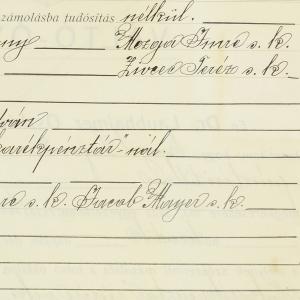 számolásba tudósítás nélkül.
ny Mozga Imre s. k.
Teréz s. k.
ván
karékpénztár"-nál.
re s. k. Jacob Mayer s. k.